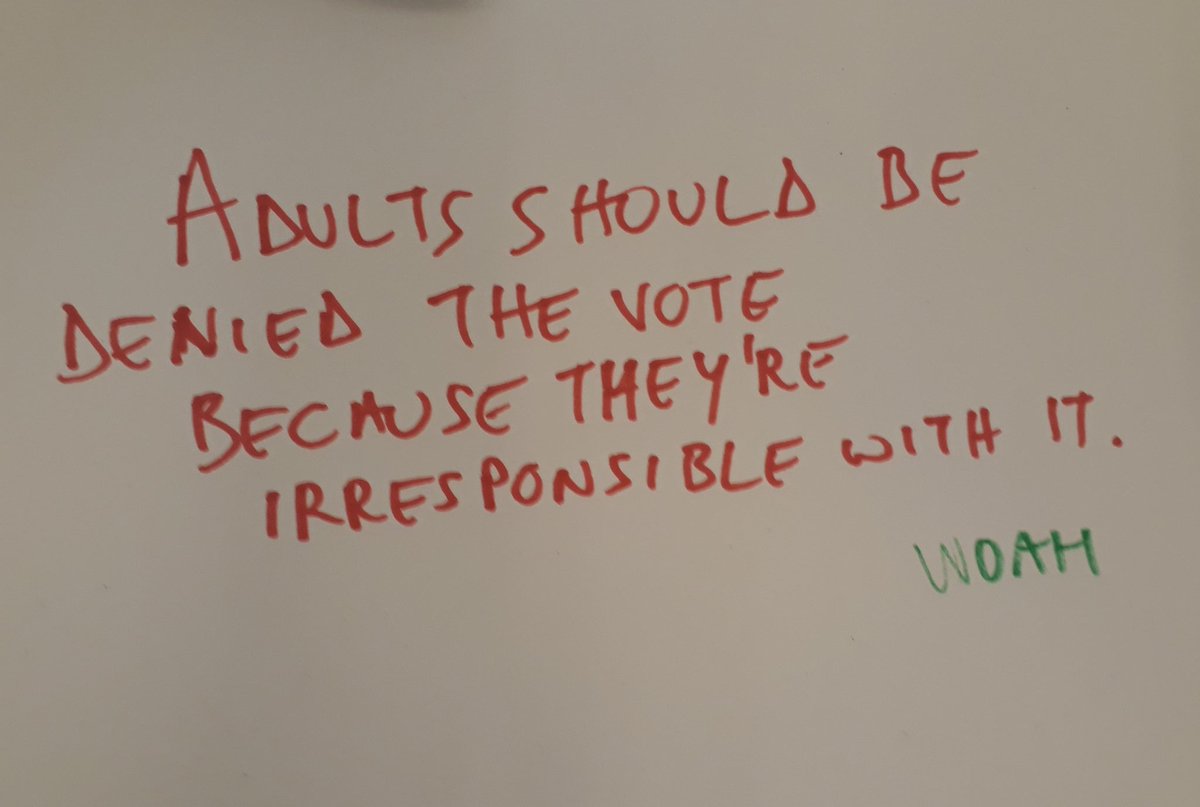 ADULTS SHOULD BE
DENIED THE VOTE
BECAUSE THEY'RE
IRRESPONSIBLE WITH IT.
WOAH